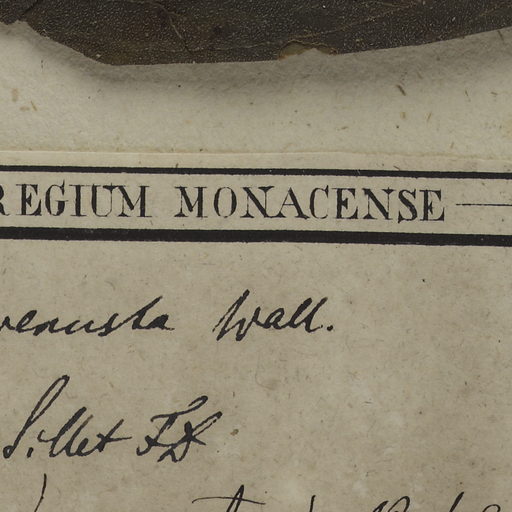 REGIUM MONACENSE
venusta Wall.
Sillet FD